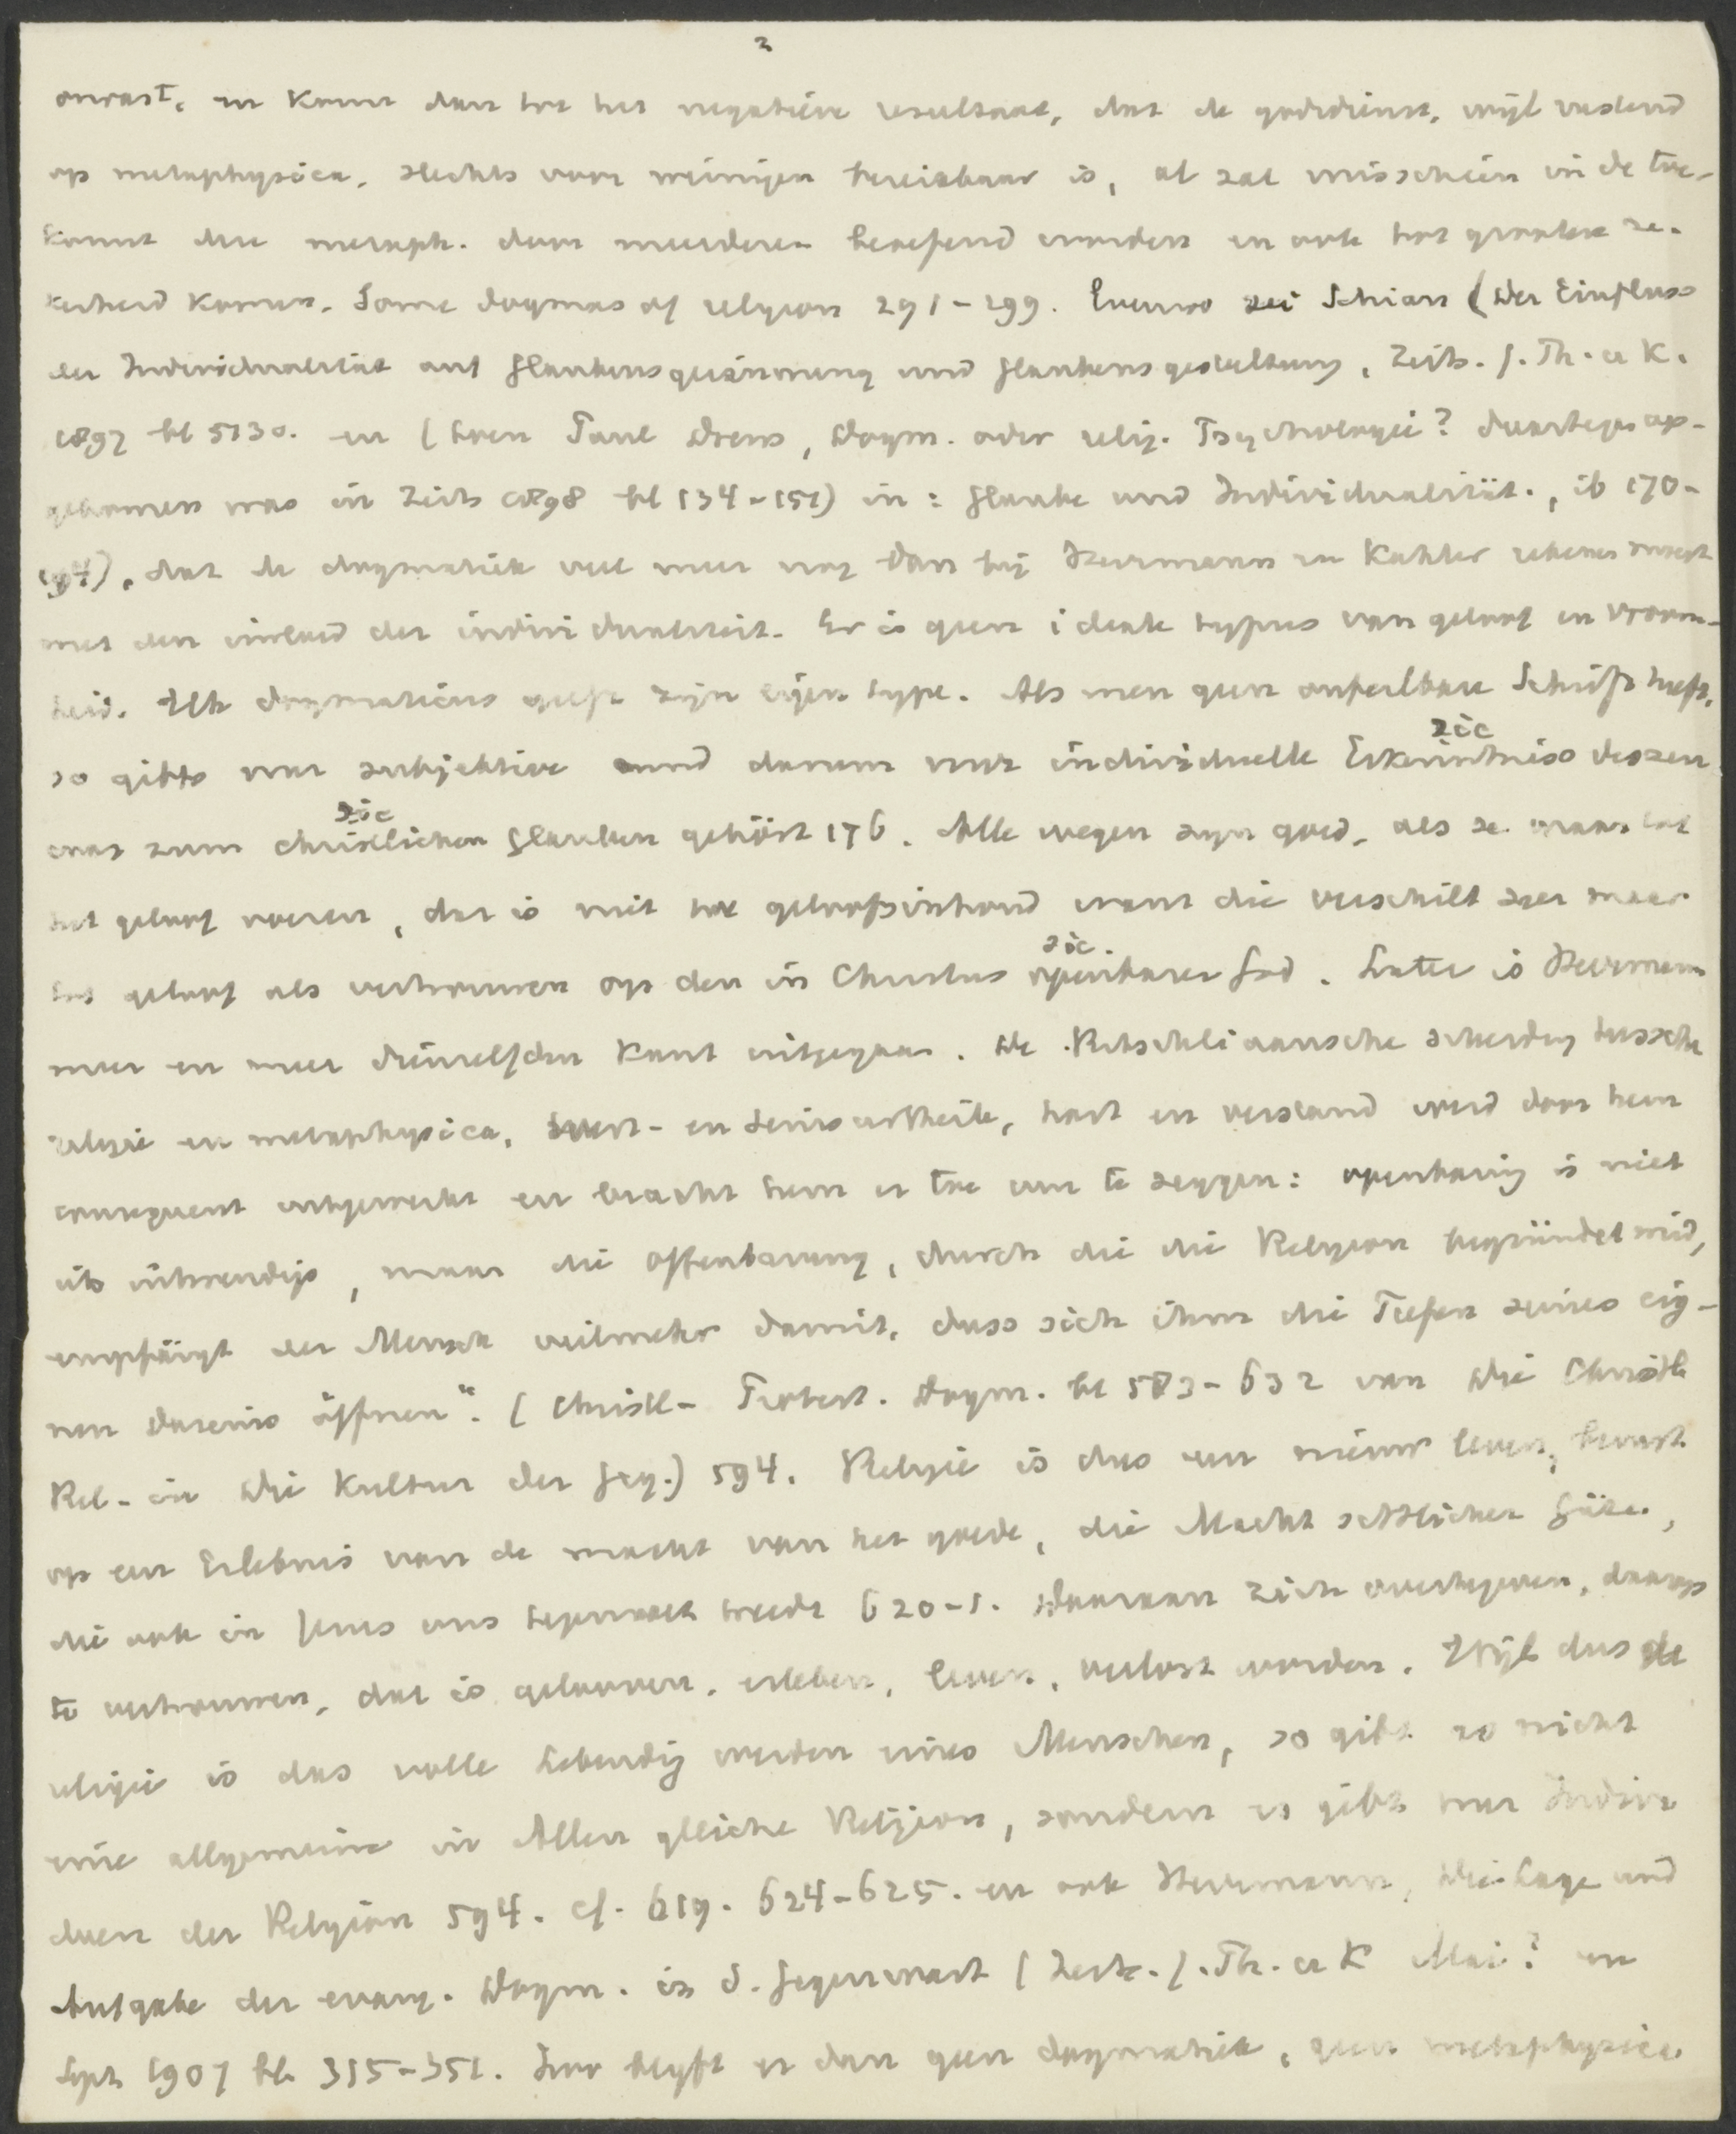 2
onvast, en komt dan tot het negatieve resultaat, dat de godsdienst, wijl rustend
op metaphysica, slechts voor weinigen bereikbaar is, al zal misschien in de toe-
komst die metaph. door meerderen beoefend worden en ook tot grootere ze-
kerheid komen. Some dogmas of religion 291-299. Evenzo zei Schian (Der Einfluss
der Individualität auf Glaubensgewinnung und Glaubensgestaltung, Zeits. f. Th. u K.
1897 bl 513 v. en (toen Paul Drews, Dogm. oder relig. Psychologie? daartegen op-
gekomen was in Zeits 1898 bl 134-151) in: Glaube und Individualität, ib 170-
194), dat de dogmatiek veel meer nog dan bij Herrmann en Kahler rekenen moest
met den invloed der individualiteit. Er is geen ideale typus van geloof en vroom-
heid. Elk dogmaticus geeft zijn eigen type. Als men geen onfeilbare Schrift heeft,
sic
so gibts nur subjektive und darum nur individuelle Erkenntniss dessen
sic
was zum christlichen Glauben gehört 176. Alle wegen zijn goed, als ze maar tot
het geloof voeren, dat is niet tot geloofsinhoud want die verschilt zeer maar
sic.
tot geloof als vertrouwen op den in Christus openbaren God. Later is Herrmann
meer en meer dienzelfden kant uitgegaan. De Ritschliaansche scheiding tussche
religie en metaphysica, Wert- en Seinsurtheile, hart en verstand werd door hem
consequent uitgewerkt en bracht hem er toe om te zeggen: openbaring is niet
iets uitwendigs, maar die Offenbarung, durch die die Religion begründet wird,
empfängt der Mensch vielmehr damit, dass sich ihm die Tiefen seines eig-
nen Daseins öffnen". (Christl- Protest. Dogm. bl 583-632 van Die Christl
Rel- in Die Kultur der Geg.) 594. Religie is dus een nieuw leven, berust
op een Erlebnis van de macht van het goede, die Macht sittlicher Güte,
die ook in Jezus ons tegemoet treedt 620-1. Daaraan zich overtegeven, daarop
te vertrouwen, dat is gelooven, erleben, leven, verlost worden. Wijl dus de
religie is das volle Lebendig werden eines Menschen, so gibt es nicht
eine allgemeine in Allen gleiche Religion, sondern es gibt nur Indivi
duen der Religion 594. cf. 619. 624-625. en ook Herrmann, Die Lage und
Aufgabe der evang. Dogm. in d. Gegenwart (Zeits. f. Th. u K Mai? en
Sept 1907 bl. 315-351. Zoo blyft er dan geen dogmatiek, geen metaphysica